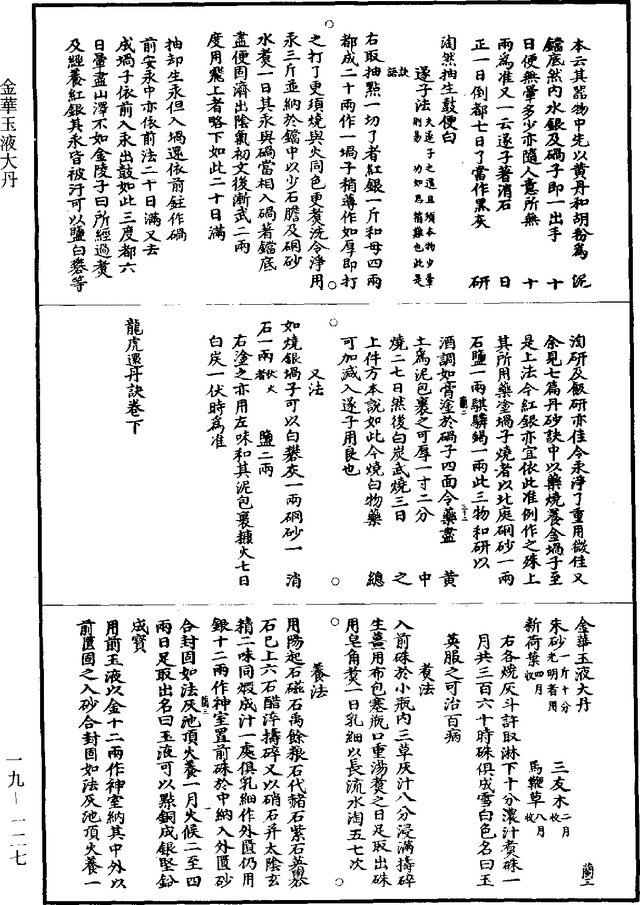 金華玉液大丹
本云其器物中先以黄丹和胡粉為泥
鐺底然內水銀及堝子即一出手十
日便無暈多少亦隨人意所無十
兩為准又一云遂子著消石日
正一日倒都七日了當作黑灰研
淘然抽生鼓便白
遂子法夫遂子之道且須本物少暈則易功如思箇難也此是訣語
右取抽點一切了者紅銀一斤和母四兩
都成二十兩作一堝子稍薄作如厚即打
之打了更須燒與火同色更煑洗令淨用
汞三斤並納於鐺中以少石膽及硇砂
水煑一日其汞與堝當相入堝著鐺底
盡便固濟出陰氣初文後漸武二兩
度用飛上者略下如此二十日滿
抽却生汞但入堝還依前鉒作堝
前安汞中亦依前法二十日滿又去
成堝子依前入汞出鼓如此三度都六
日暈盡山澤不如金陵子曰所經過煑
及經養紅銀其汞皆被汙可以鹽白礬等
淘研及飯研亦佳令汞淨了重用微佳又
余見七篇丹砂訣中以藥燒養金堝子至
是上法今紅銀亦宜依此准例作之殊上
其所用藥塗堝子燒者以北庭硇砂一兩
石鹽一兩騏驎蝎一兩此三物和研以
酒調如膏塗於堝子四面令藥盡黄
土為泥包裹之可厚一寸二分中
燒二七日然後白炭武燒三日之
上件方本說如此今燒白物藥總
可加減入遂子用良也
又法
如燒銀堝子可以白礬灰一兩硇砂一消
石一兩伏火者鹽二兩
右塗之亦用左味和其泥包裹糠火七日
白炭一伏時為准
龍虎還丹訣卷下
金華玉液大丹
朱砂一斤十分光明者用三友木二月收
新荷葉四月收馬鞭草八月收
右各燒灰斗許取淋下十分濃汁煑硃一
月共三百六十時硃俱成雪白色名曰玉
英服之可治百病
煑法
入前硃於小瓶內三草灰汁八分浸滿擣碎
生薑用布包塞瓶口重湯煑之日足取出硃
用皂角煑一日乳細以長流水淘五七次
養法
用陽起石磁石禹餘粮石代赭石紫石英
石已上六石醋淬擣碎又以硝石并太陰玄
精二味同煅成汁一處俱乳細作外匱仍用
銀十二兩作神室置前硃於中納入外匱砂
合封固如法灰池頂火養一月火候二至四
兩日足取出名曰玉液可以㸃銅成銀堅鉛
成寳
用前玉液以金十二兩作神室納其中外以
前匱固之入砂合封固如法灰池頂火養一
蘭三
一九—一二七